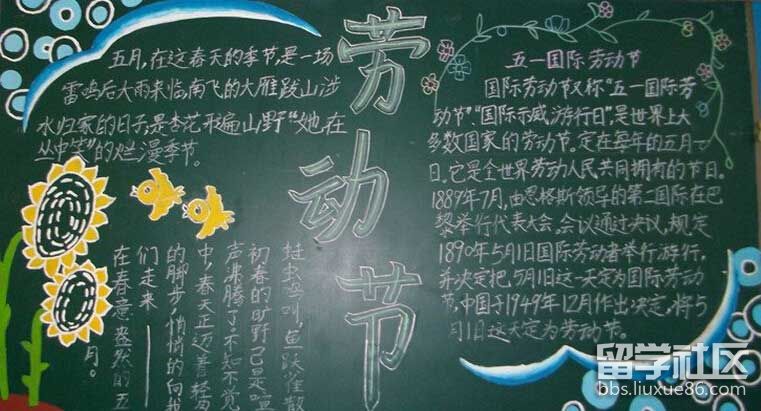 五月,在这春天的季节,是一场
雷鸣后大雨来临,南飞的大雁跋山涉
水归家的日子,是杏花形遍山野“她在
丛中笑”的烂漫季节。
蛙虫鸟叫,鱼跃散
初春的旷野已是喧
声沸腾了,不知不觉
中,春天正迈着轻
的脚步,悄悄的向我
们走来——
在春意盎然的五
月。
劳动节
五一国际劳动节
国际劳动节又称“五一国际劳
动节”“国际示威游行日”,是世界上大
多数国家的劳动节。定在每年的五月一
日。它是全世界劳动人民共同拥有的节日。
1889年7月,由恩格斯领导的第二国际在巴
黎举行代表大会。会议通过决议,规定
1890年5月1日国际劳动者举行游行,
并决定把5月1日这一天定为国际劳动
节,中国于1949年12月作出决定,将5
月1日这天定为劳动节。
留学社区
bbs.liuxue86.com